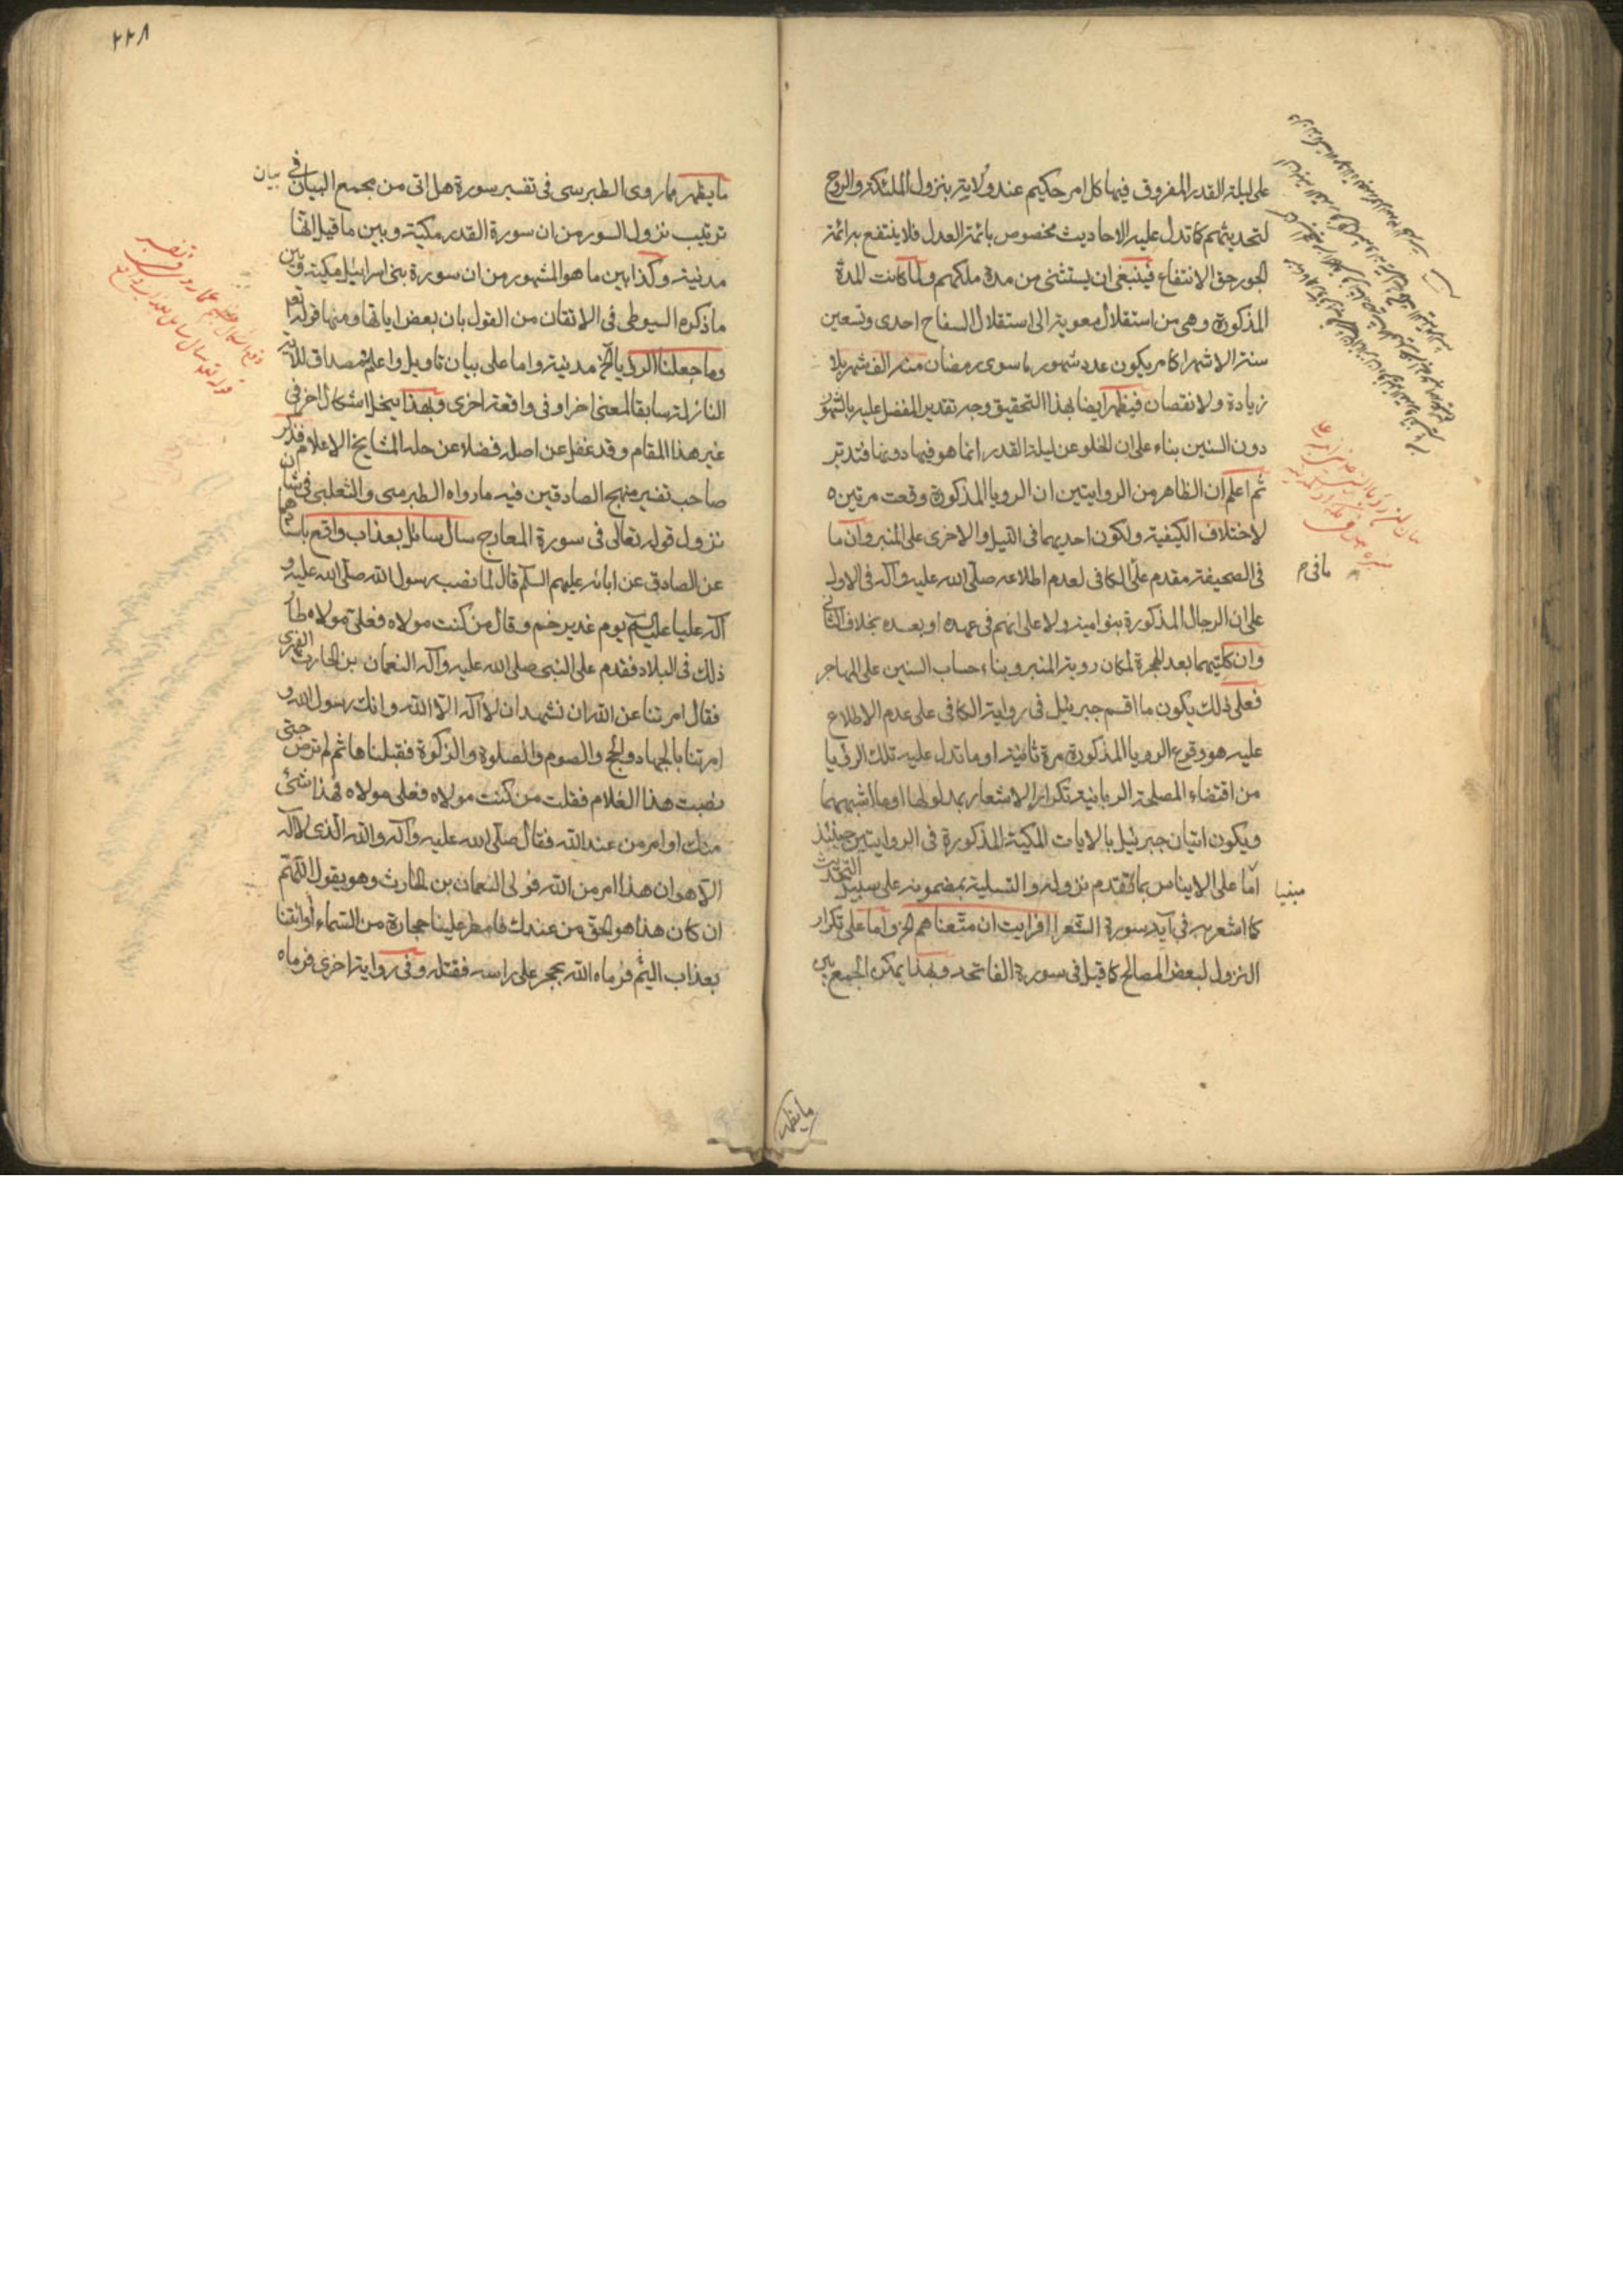 على ليلة القدر المفروق فيها كل امر حكيم عند ولايته بنزول الملئكة والروح
لتحديثهم كما تدل عليه الاحاديث مخصوص بائمة العدل فلا ينتفع به ائمة
الجور حق الانتفاع فينبغى ان يستثنى من مدة ملكهم ولما كانت المدة
المذكورة وهى من استقلال معوية الى استقلال السفاح احدى وتسعين
سنة الا شهرا كامر يكون عدد شهور ما سوى رمضان منه الف شهر بلا
زيادة ولا نقصان فيظهر ايضا بهذا التحقيق وجه تقدير المفضل عليه بالشهور
دون السنين بناء على ان الخلو عن ليلة القدر انما هو فيها دونها فتدبر
ثم اعلم ان الظاهر من الروايتين ان الرويا المذكورة وقعت مرتين
لاختلاف الكيفية ولكون احديهما فى الليل والاخرى على المنبر وان ما
فى الصحيفة مقدم على الكافى لعدم اطلاعه صلى الله عليه وآله فى الاول
على ان الرجال المذكورة بنو امية ولا على انهم فى عهده او بعده بخلاف الثانى
وان كلتيهما بعد الهجرة لمكان روية المنبر وبناء حساب السنين على المهاجر
فعلى ذلك يكون ما اقسم جبرئيل فى رواية الكافى على عدم الاطلاع
عليه هو وقوع الرويا المذكورة مرة ثانية او ما تدل عليه تلك الرؤيا
من اقتضاء المصلحة الربانية تكرار الاشعار بمدلولها او ما اشبههما
ويكون اتيان جبرئيل بالايات المكية المذكورة فى الروايتين حينئذ
اما على الايناس بما تقدم نزوله والتسلية بمضمونه على سبيل التحديث
كما اشعر به فى آية سورة الشعرا افرايت ان متعناهم الخ واما على تكرار
النزول لبعض المصالح كما قيل فى سورة الفاتحه وبهذا يمكن الجمع بين
مافى م
مبنيا
ما يظهر
٢٢٨
ما يظهر مما روى الطبرسى فى تفسير سورة هل اتى من مجمع البيان فى بيان
ترتيب نزول السور من ان سورة القدر مكية وبين ما قيل انها
مدنية وكذا بين ما هو المشهور من ان سورة بنى اسرائيل مكية وبين
ما ذكره السيوطى فى الاتقان من القول بان بعض اياتها ومنها قوله تع
وما جعلنا الرؤيا الخ مدنية واما على بيان تاويل واعلام مصداق للاية
النازلة سابقا لمعنى اخر او فى واقعة اخرى وبهذا ينحل اشكال اخر فى
غير هذا المقام وقد غفل عن اصله فضلا عن حله المشايخ الاعلام فذكر
صاحب تفسير منهج الصادقين فيه ما رواه الطبرسى والثعلبى فى شان
نزول قوله تعالى فى سورة المعارج سال سائل بعذاب واقع باسنادهما
عن الصادق عن ابائه عليهم السلم قال لما نصب رسول الله صلى الله عليه و
آله عليا عليه السلم يوم غدير خم وقال من كنت مولاه فعلى مولاه طار
ذلك فى البلاد فقدم على النبى صلى الله عليه وآله النعمان بن الحارث الفهرى
فقال امرتنا عن الله ان نشهد ان لا آله الا الله وانك رسول الله و
امرتنا بالجهاد والحج والصوم والصلوة والزكوة فقبلناها ثم لم ترض حتى
نصبت هذا الغلام فقلت من كنت مولاه فعلى مولاه فهذا شئ
منك او امر من عند الله فقال صلى الله عليه وآله والله الذى لا آله
الا هو ان هذا امر من الله فولى النعمان بن الحارث وهو يقول اللهم
ان كان هذا هو الحق من عندك فامطر علينا حجارة من السماء او ائتنا
بعذاب اليم فرماه الله بحجر على راسه فقتله وفى رواية اخرى فرماه